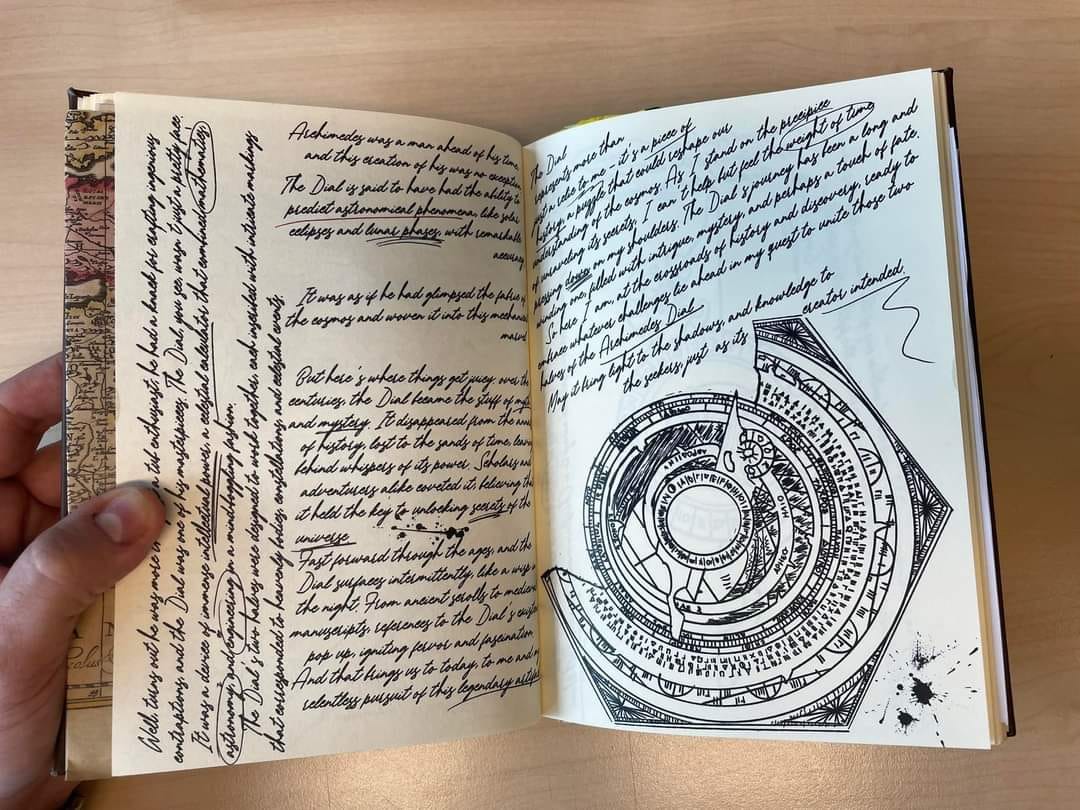 Well, turns out he was more enthusiast; he had a knack for crafting ingenious
contraptions, and the Dial was one of his masterpieces. The Dial, you see, wasn't just a pretty face;
It was a device of immense intellectual power, a celestial calculator that combined mathematics,
astronomy, and engineering in a mind-boggling fashion.
The Dial's two halves were designed to work together, each inscribed with intricate markings
that corresponded to heavenly bodies, constellations, and celestial events.
Archimedes was a man ahead of his time,
and this creation of his was no exception.
The Dial is said to have had the ability to
predict astronomical phenomena, like solar
eclipses and lunar phases, with remarkable
accuracy
It was as if he had glimpsed the fabric of
the cosmos and woven it into this mechanical
marvel
But here's where things get juicy: over the
centuries, the Dial became the stuff of
and mystery. It disappeared from the
of history, lost to the sands of time,
behind whispers of its power. Scholars and
adventurers alike coveted it, believing that
it held the key to unlocking secrets of the
universe
Fast forward through the ages, and the
Dial surfaces intermittently, like a wisp in
the night. From ancient scrolls to medieval
manuscripts, references to the Dial's
pop up, igniting fervor and fascination.
And that brings us to today, to me and
relentless pursuit of this legendary
The Dial
represents more than
just a relic to me - it's a piece of
history, a puzzle that could reshape our
understanding of the cosmos. As I stand on the precipice
of unraveling its secrets, I can't help but feel the weight of time
pressing down on my shoulders. The Dial's journey has been a long and
winding one, filled with intrigue, mystery, and perhaps a touch of fate.
So here I am, at the crossroads of history and discovery, ready to
embrace whatever challenges lie ahead in my quest to unite those two
halves of the Archimedes Dial
May it bring light to the shadows, and knowledge to
the seekers, just as its creator intended.